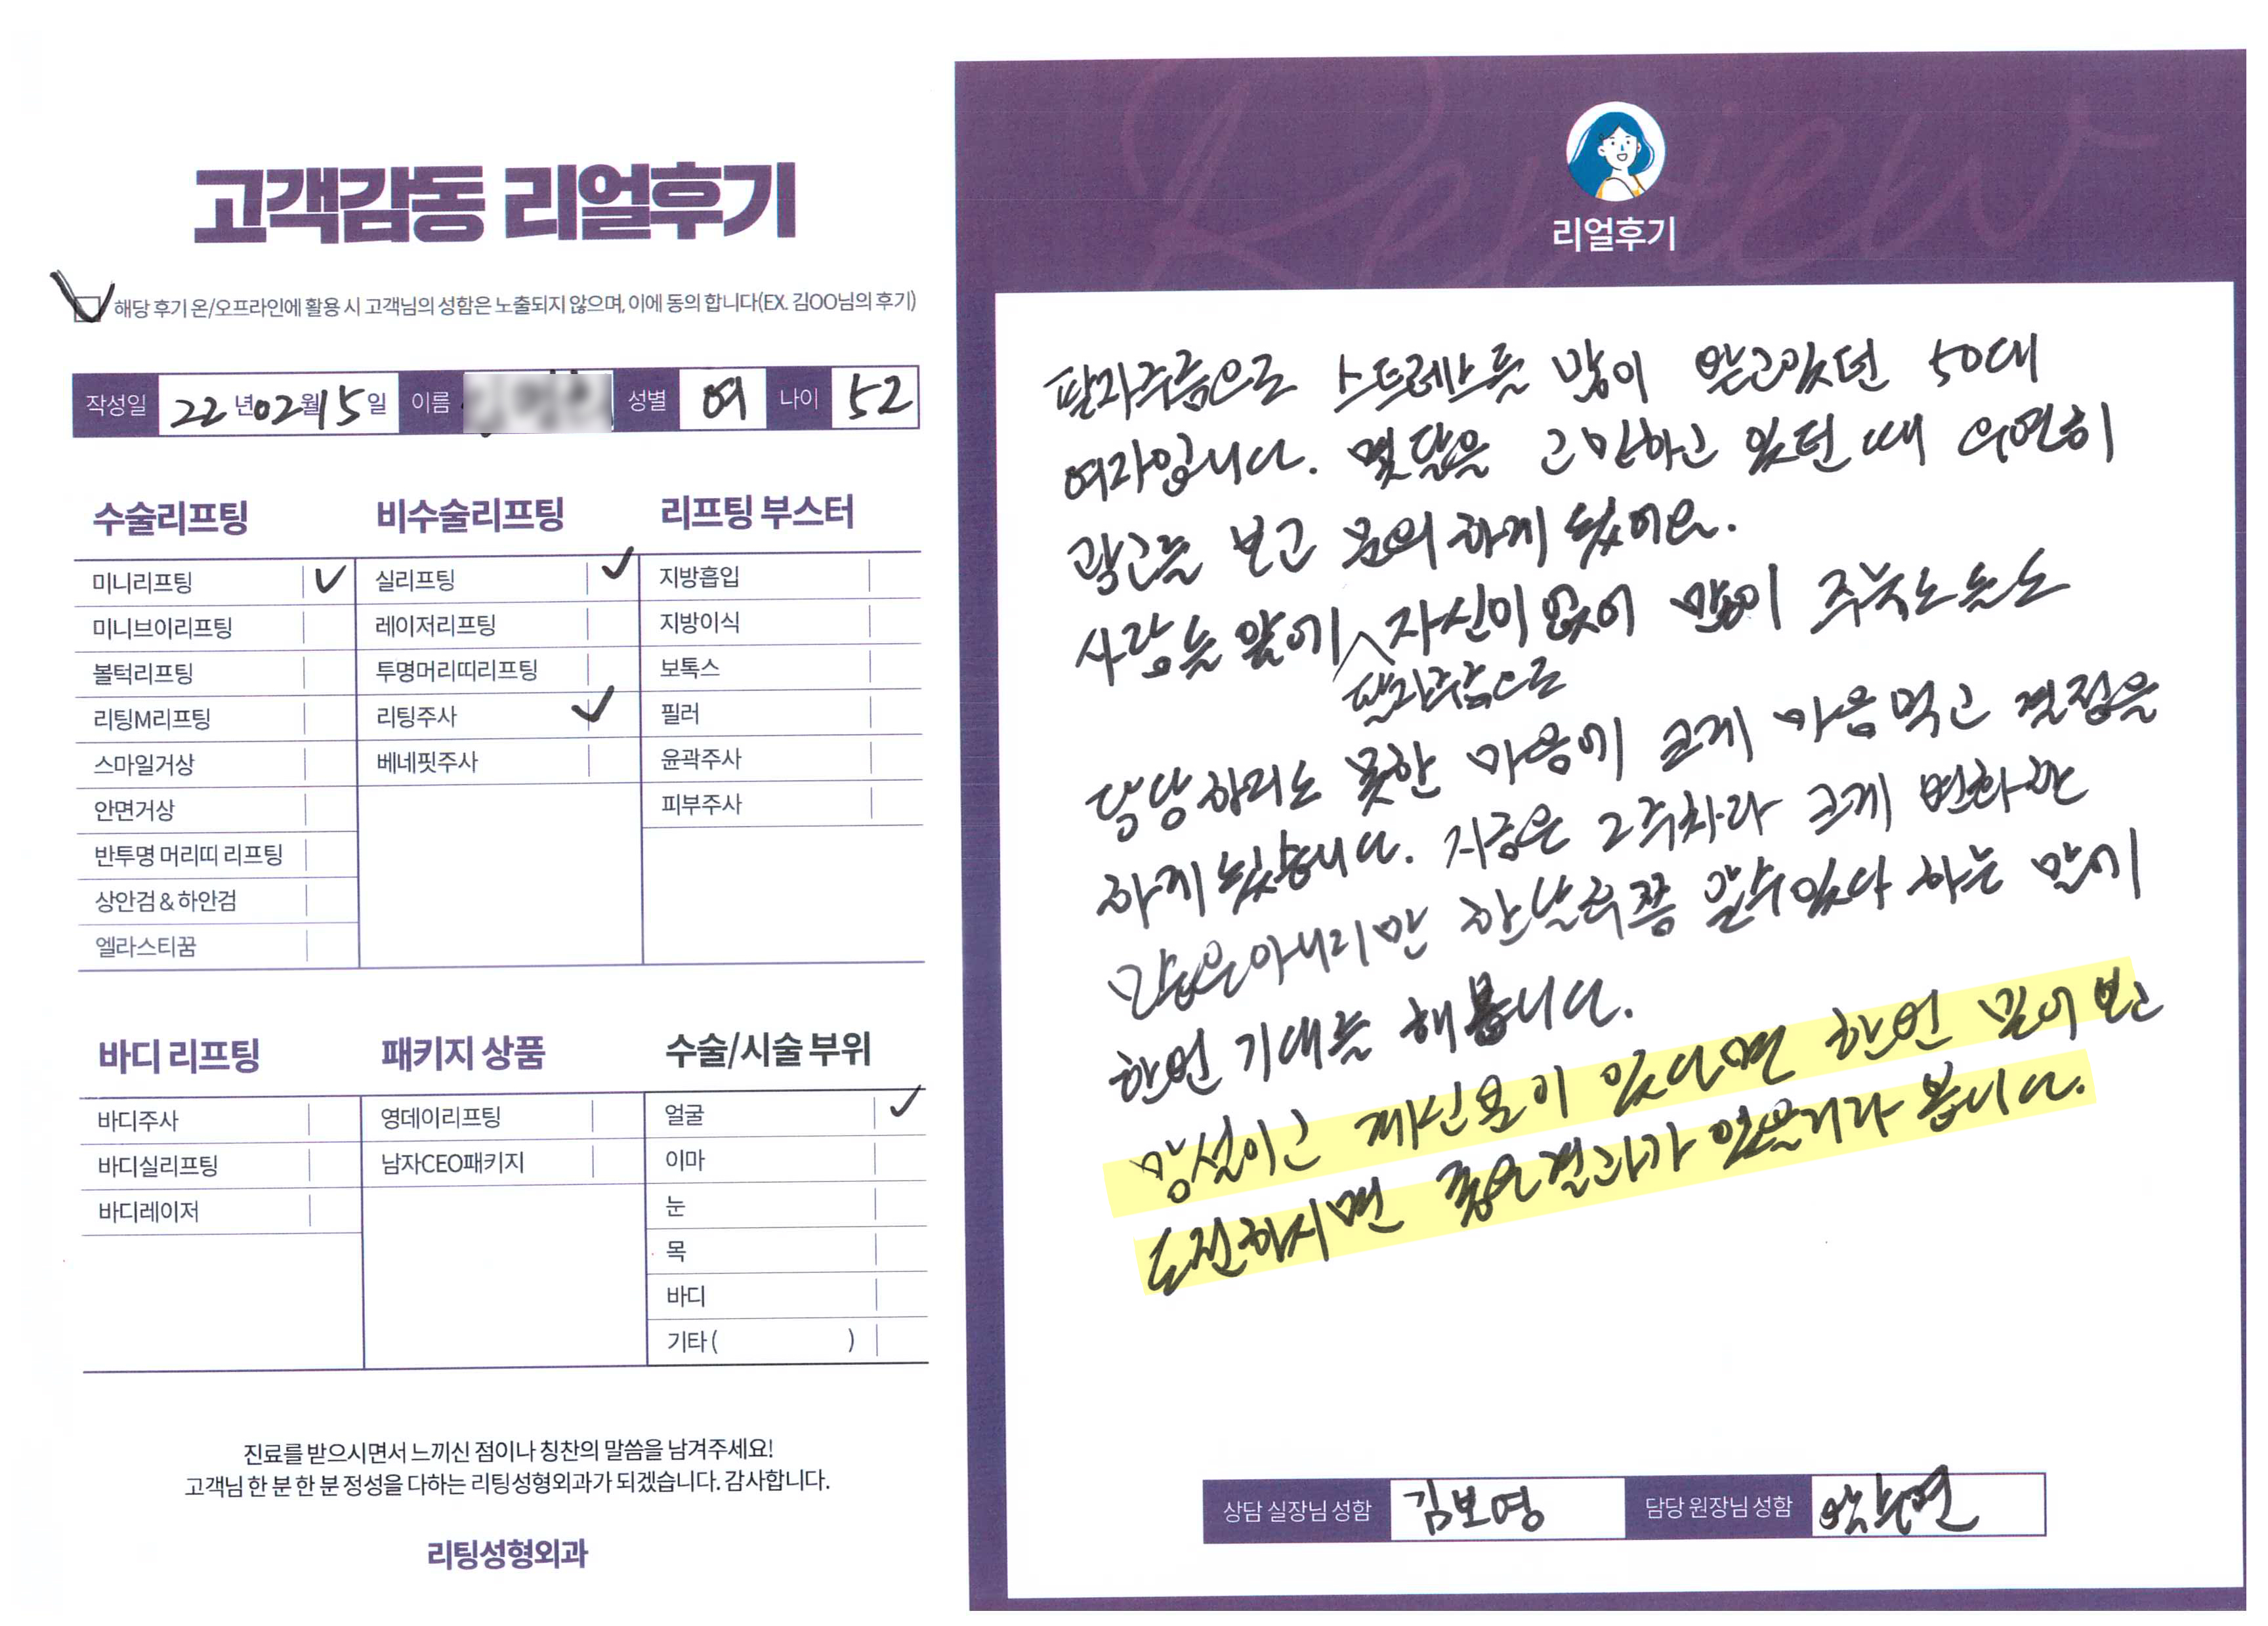 고객감동 리얼후기
해당 후기 온/오프라인에 활용 시 고객님의 성함은 노출되지 않으며, 이에 동의 합니다(EX. 김OO님의 후기)
작성일 22년 02월 15일 이름 성별 여 나이 52
수술리프팅
미니리프팅
미니브이리프팅
볼턱리프팅
리팅M리프팅
스마일거상
안면거상
반투명 머리띠 리프팅
상안검 & 하안검
엘라스티꿈
비수술리프팅
실리프팅
레이저리프팅
투명머리띠리프팅
리팅주사
베네핏주사
리프팅 부스터
지방흡입
지방이식
보톡스
필러
윤곽주사
피부주사
바디 리프팅
바디주사
바디실리프팅
바디레이저
패키지 상품
영데이리프팅
남자CEO패키지
수술/시술 부위
얼굴
이마
눈
목
바디
기타 ( )
진료를 받으시면서 느끼신 점이나 칭찬의 말씀을 남겨주세요!
고객님 한 분 한 분 정성을 다하는 리팅성형외과가 되겠습니다. 감사합니다.
리팅성형외과
Review
리얼후기
팔자주름으로 스트레스를 많이 받고있던 50대
여자입니다. 몇달을 고민하고 있던 때 우연히
광고를 보고 문의 하게 됬어요.
사람들 앞에 자신이 없어 많이
팔자주름으로
당당하지도 못한 마음에 크게 마음먹고 결정을
하게 됬습니다. 지금은 2주차라 크게 변화한
감은아니지만 한달후쯤 알수있다 하는 말에
한번 기대를 해봅니다.
망설이고 계신분이 있다면 한번 믿어 보고
도전하시면 좋은결과가 있을거라 봅니다.
상담 실장님 성함 김보영 담당 원장님 성함